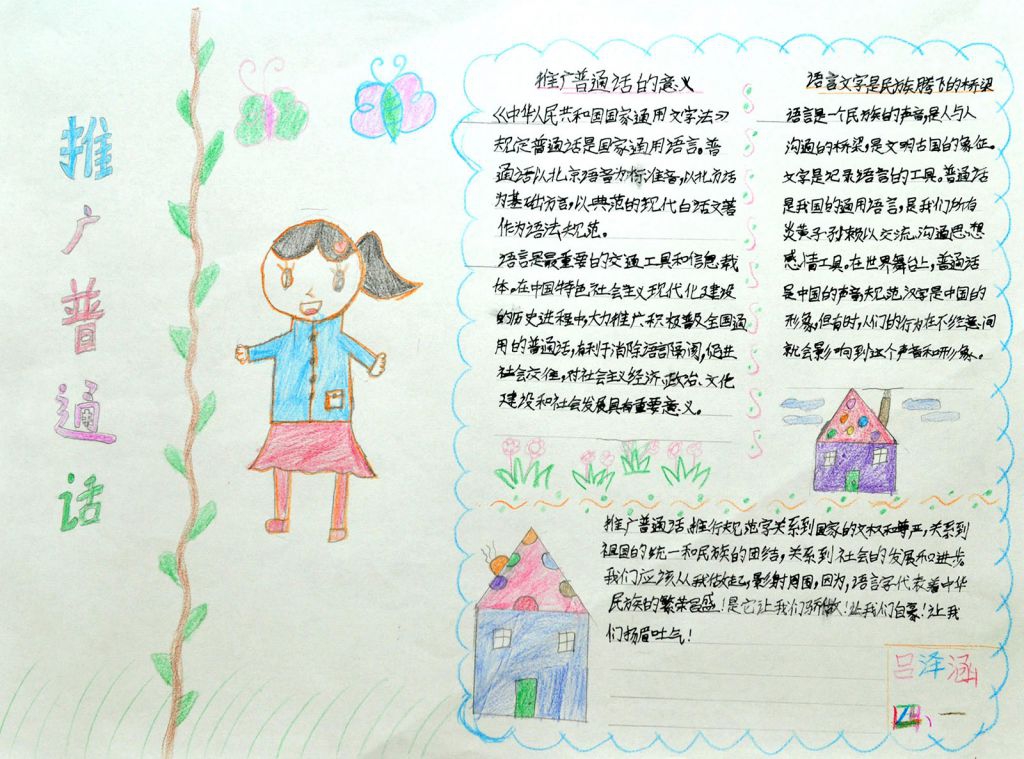 推广普通话
推广普通话的意义
《中华人民共和国国家通用文字法》
规定普通话是国家通用语言。普
通话以北京语音为标准音,以北方话
为基础方言,以典范的现代白话文著
作为语法规范。
语言是最重要的交通工具和信息载
体。在中国特色社会主义现代化建设
的历史进程中,大力推广,积极普及全国通
用的普通话,有利于消除语言隔阂,促进
社会交往,对社会主义经济、政治、文化
建设和社会发展具有重要意义。
语言文字是民族腾飞的桥梁
语言是一个民族的声音,是人与人
沟通的桥梁,是文明古国的象征。
文字是记录语言的工具。普通话
是我国的通用语言,是我们所有
炎黄子孙赖以交流、沟通思想
感情工具。在世界舞台上,普通话
是中国的声音,规范汉字是中国的
形象,但有时,人们的行为在不经意间
就会影响到这个声音和形象。
推广普通话、推行规范字关系到国家的文权和尊严,关系到
祖国的统一和民族的团结,关系到社会的发展和进步。
我们应该从我做起,影射周围,因为,语言字代表着中华
民族的繁荣昌盛!是它让我们骄傲!让我们自豪!让我
们扬眉吐气!
吕泽涵
四、一